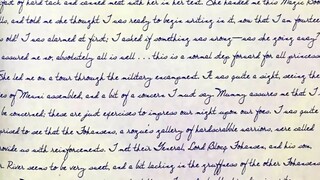 of hard tack and canned meat with her in her tent. She handed me this Magic Boo
lls, and told me she thought I was ready to begin writing in it, now that I am fourtee
rs old! I was alarmed at first; I asked if something was wrong—was she going away?
assured me no, absolutely all is well . . . this is a normal step forward for all princess
She led me on a tour through the military encampment. It was quite a sight, seeing the
es of Mewni assembled, and a bit of a concern I must say. Mummy assures me that I
be concerned; these are just exercises to impress our might upon our foes. I was quite
prised to see that the Johansens, a rogue's gallery of hardscrabble warriors, were called
ovide us with reinforcements. I met their General, Lord Bloop Johansen, and his son
River seems to be very sweet, and a bit lacking in the gruffness of the other Johansens